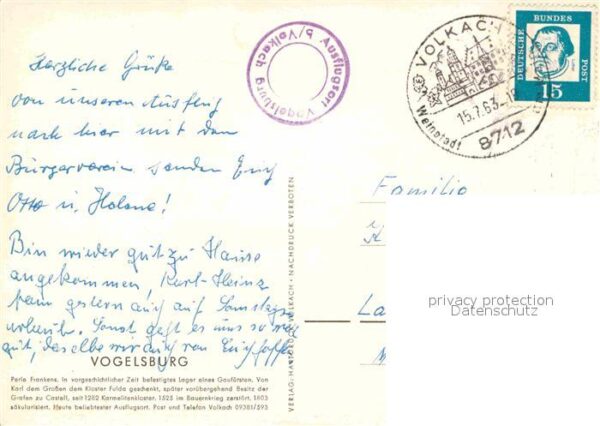 Herzliche Grüße
von unseren Ausflug
nach hier mit dem
Bürgerverein senden Euch
Otto u. Helene!
Bin wieder gut zu Hause
angekommen, Karl-Heinz
kam gestern auch auf Samstags
urlaub. Sonst geht es uns so weit
gut, dasselbe wir auch von Euch hoffen
VOGELSBURG
Perle Frankens. In vorgeschichtlicher Zeit befestigtes Lager eines Gaufürsten. Von
Karl dem Großen dem Kloster Fulda geschenkt, später vorübergehend Besitz der
Grafen zu Castell, seit 1282 Karmelitenkloster. 1525 im Bauernkrieg zerstört. 1803
säkularisiert. Heute beliebtester Ausflugsort. Post und Telefon Volkach 09381/593
Ausflugsort Vogelsburg
b/Volkach
VOLKACH
15.7.63
Weinstadt
8712
DEUTSCHE BUNDES POST
15
VOLKACH · NACHDRUCK VERBOTEN
VERLAG:
Familie
La
privacy protection
Datenschutz